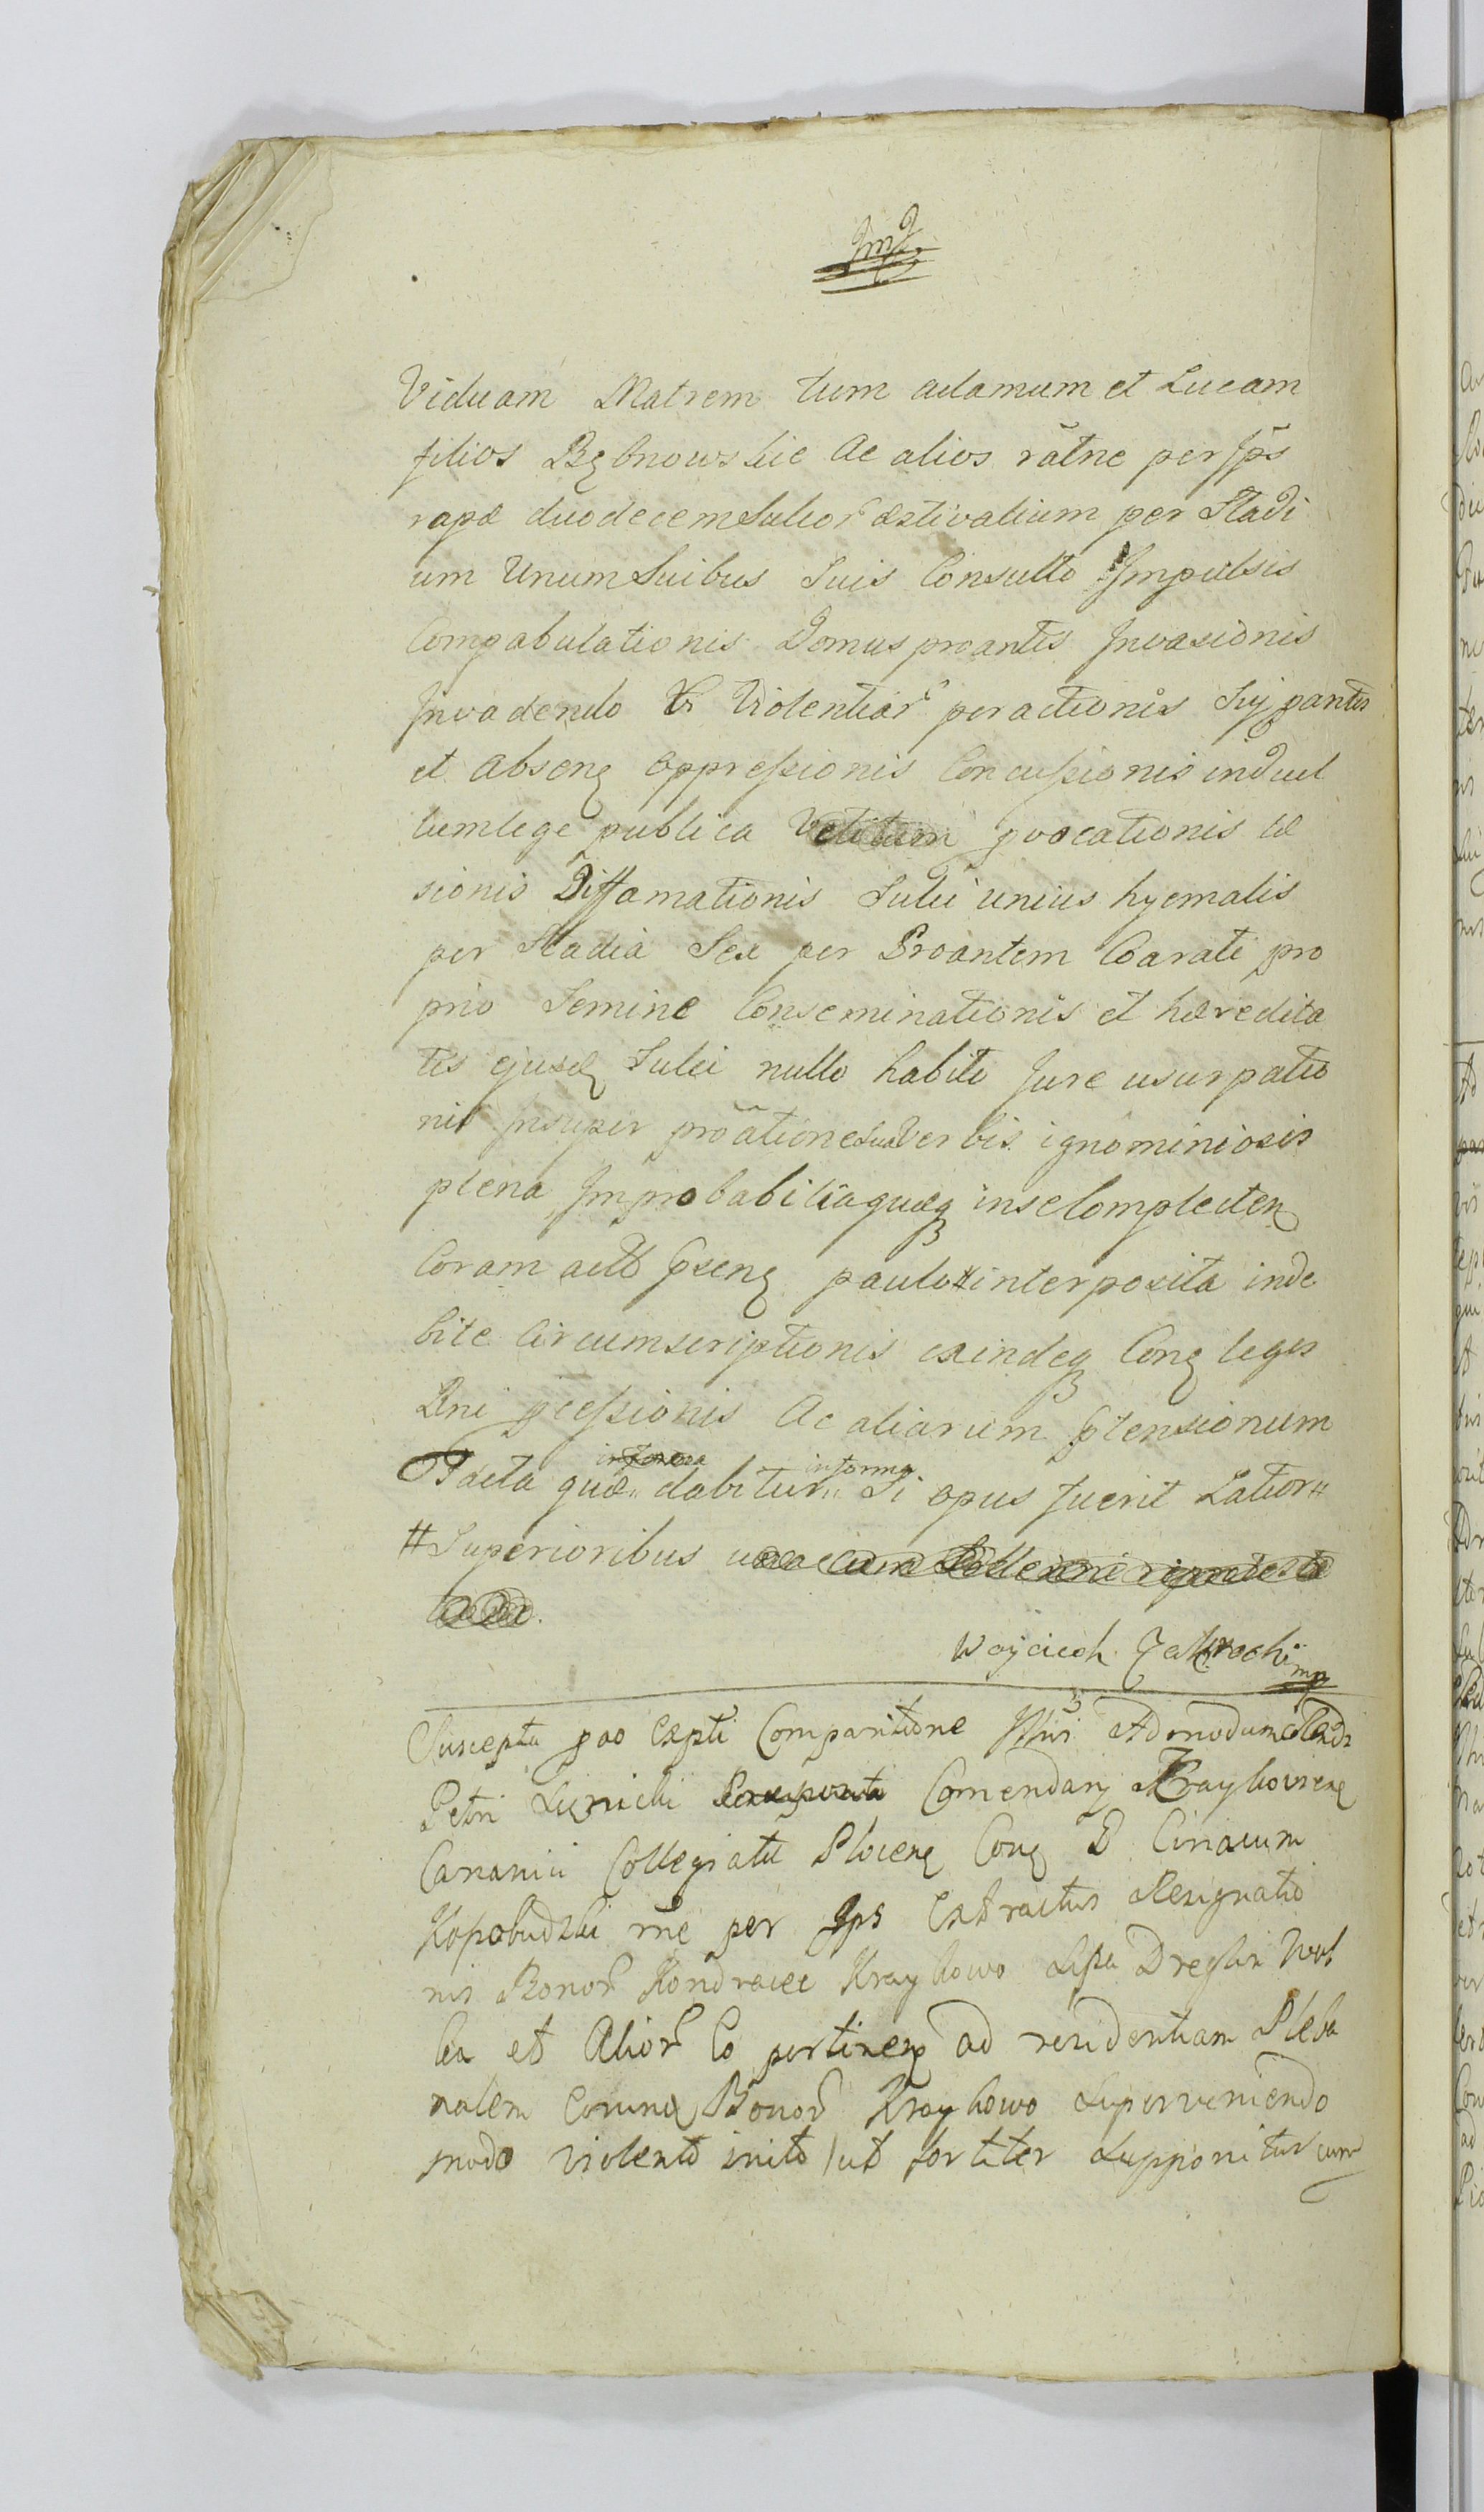 Viduam Matrem tum adamum et Lucam
filios Bębnowskie ac alios rãtne per Ips
rapæ duodecem Sulcor æstivalium per Stadi
um Unum Suibus Suis Consulto Impulsis
Compabulationis Domus proantis Invasionis
Invadendo Vi Violentiar peractionis Sujpantis
et absenę oppressionis Concussionis in duel
lum lege publica Vetitum pvocationis læ
sionis Diffamationis Sulci unius hyemalis
per Stadia Sex per Proantem Coarati pro
prio Semine Conseminationis et hæredita
tis ejusdę Sulci nullo habito Jure usurpatio
nis Insuper proãtione sua Verbis ignominiosis
plena Improbabiliaquæq in se Complecten
Coram actis pseną paulo interposita inde
bite Circumscriptionis exindeq Coną leges
Rni pcessionis Ac aliarum ptensionum
Facta quæ dabitur in forma Si opus fuerit Latior #
# Superioribus
Wojciech
Suscepta pao Expti Comparitione Admodum Rndi
Petri Comendarj Kraykovieną
Canonici Collegiatæ Ploceną Coną G
Kopobudzki rne per Ips Extractus Resignatio
nis Bonor Kondrajec Kraykowo Lipa Dreglin Wol
ka et Alior eo pertineną ad residentiam Pleba
nalem Bonor Kraykowo Superveniendo
modo violento inito /ut fortiter Supponitur cum